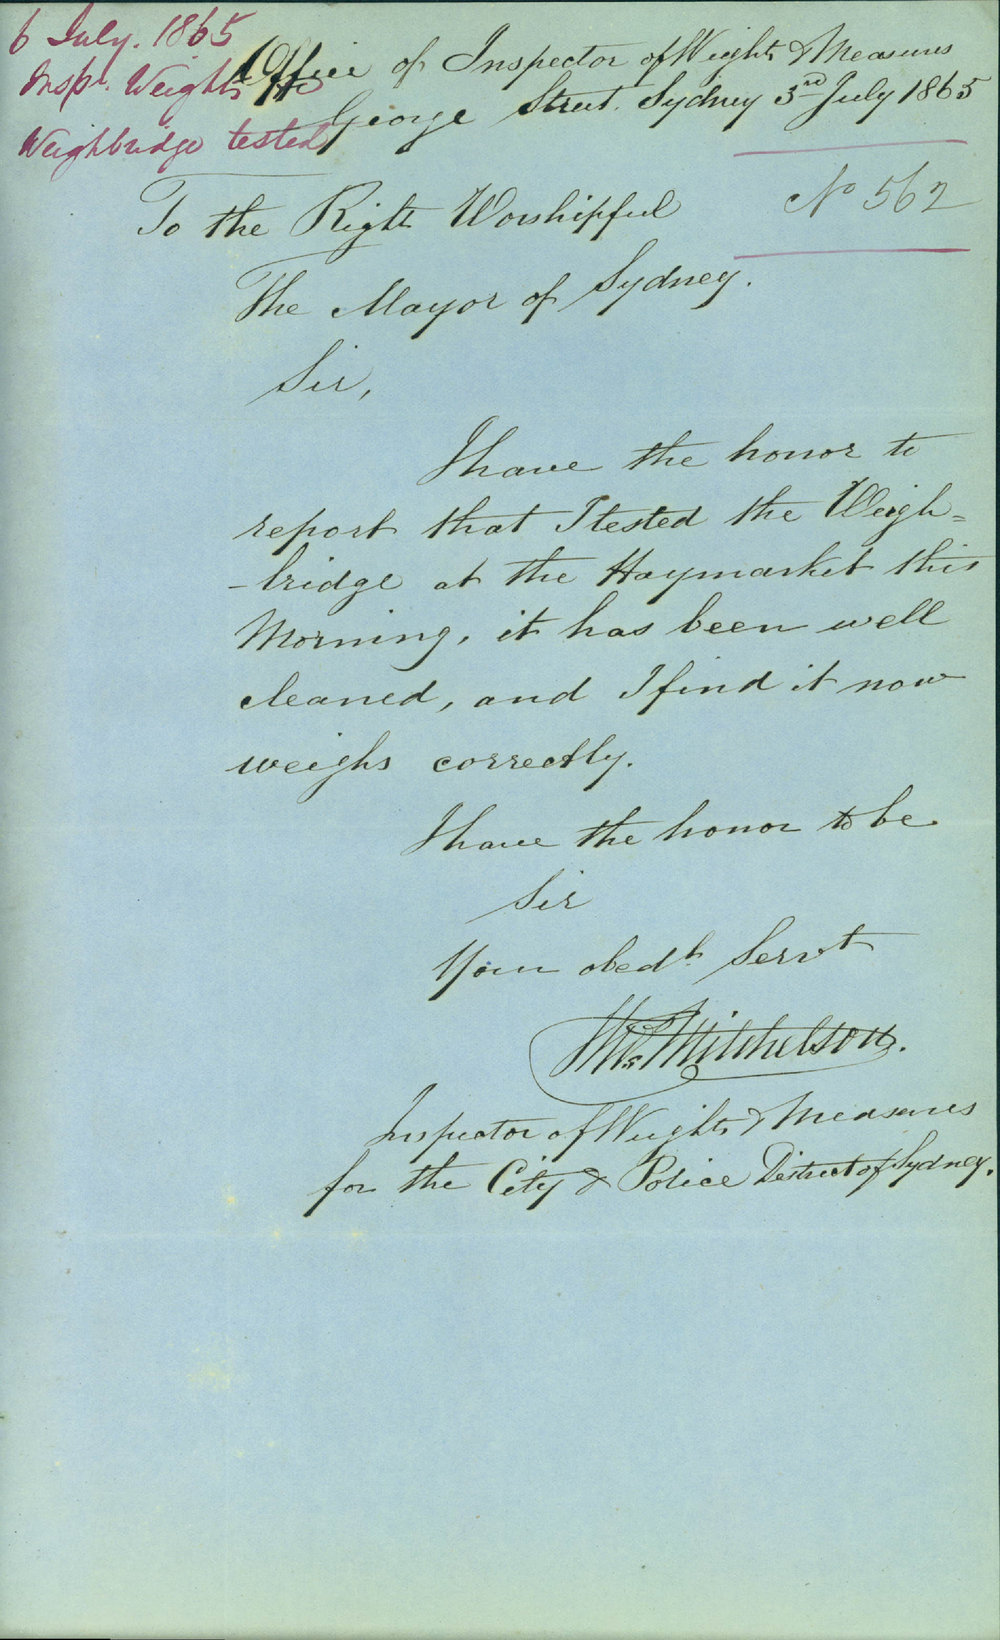 6 July. 1865
Inspr. Weights &c
Weighbridge tested
Office of Inspector of Weights & Measures
George Street. Sydney 3rd July 1865
No 562
To the Right Worshipful
The Mayor of Sydney.
Sir,
I have the honor to
report that I tested the Weigh=
-bridge at the Haymarket this
Morning, it has been well
cleaned, and I find it now
weighs correctly.
I have the honor to be
Sir
Your obedt Servt
Mitchelson.
Inspector of Weights & Measures
for the City & Police District of Sydney.